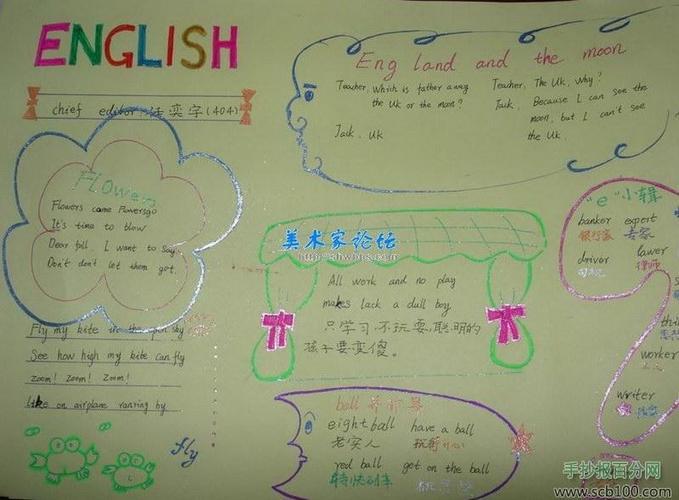 ENGLISH
chief editor (404)
Flower
Flowers come Flowersgo
It's time to blow
Dear fall, I want to say
Don't don't let them got.
Fly my kite in the sky
See how high my kite can fly
Zoom! Zoom! Zoom!
like on airplane ranring by
fly
Eng land and the moon
Teacher, Which is father away
the UK or the moon?
Jack, UK
Teacher, The UK, Why?
Jack, Because I can see the
moon, but I can't see
the UK.
美术家论坛
All work and no play
makes lack a dull boy
只学习,不玩耍,聪明的
孩子要变傻。
"e"小辑
banker expert
银行家 专家
driver lawer
司机 律师
worker
writer
作家
ball
eight ball have a ball
老实人 玩得开心
red ball get on the ball
特快列车
手抄报百分网
www.scb100.com